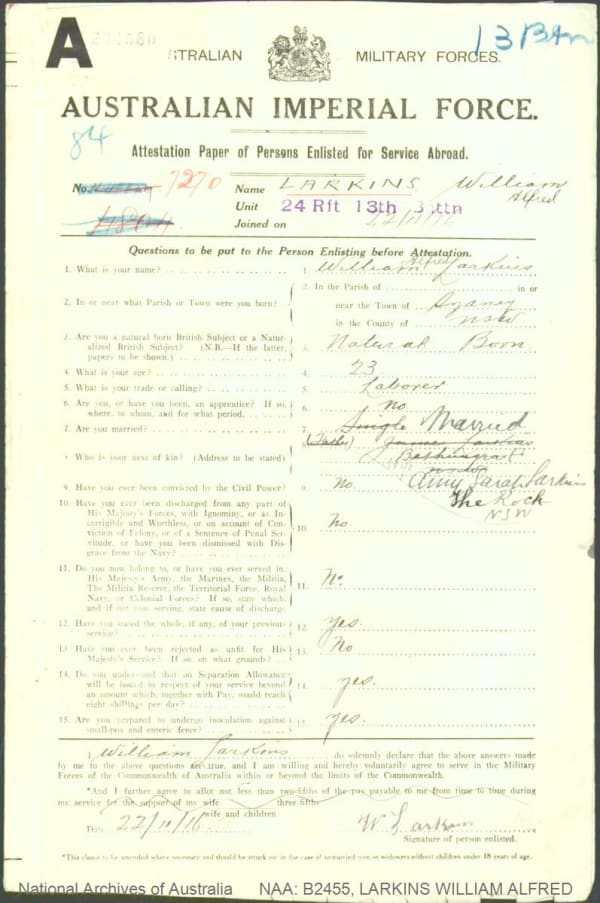 A
13 Btn
TRALIAN MILITARY FORCES.
AUSTRALIAN IMPERIAL FORCE.
84
Attestation Paper of Persons Enlisted for Service Abroad.
No. 7270 Name LARKINS William Alfred
Unit 24 Rft 13th Bttn
Joined on 22/11/16
Questions to be put to the Person Enlisting before Attestation.
1. What is your name? 1. William Alfred Larkins
2. In or near what Parish or Town were you born? 2. In the Parish of in or
near the Town of
in the County of NSW
3. Are you a natural born British Subject or a Natur-
alized British Subject? (N.B.—If the latter, 3. Natural Born
papers to be shown.)
4. What is your age? 4. 23
5. What is your trade or calling? 5. Laborer
6. Are you, or have you been, an apprentice? If so,
where, to whom, and for what period. 6. No
7. Are you married? 7. Single Married
(Father) James Larkins
8. Who is your next of kin? (Address to be stated)
9. Have you ever been convicted by the Civil Power? 9. No. Amy Sarah Larkins
The Rock
NSW
10. Have you ever been discharged from any part of
His Majesty's Forces, with Ignominy, or as In-
corrigible and Worthless, or on account of Con-
viction of Felony, or of a Sentence of Penal Ser- 10. No.
vitude, or have you been Dismissed with Dis-
grace from the Navy?
11. Do you now belong to, or have you ever served in,
His Majesty's Army, the Marines, the Militia,
The Militia Reserve, the Territorial Force, Royal 11. No
Navy, or Colonial Forces? If so, state which,
and if not now serving, state cause of discharge
12. Have you stated the whole, if any, of your previous
service? 12. yes.
13. Have you ever been rejected as unfit for His
Majesty's Service? If so, on what grounds? 13. No
14. Do you understand that no Separation Allowance
will be issued in respect of your service beyond
an amount which, together with Pay, would reach 14. yes.
eight shillings per day?
15. Are you prepared to undergo inoculation against
small-pox and enteric fever? 15. yes.
I, William Larkins do solemnly declare that the above answers made
by me to the above questions are true, and I am willing and hereby voluntarily agree to serve in the Military
Forces of the Commonwealth of Australia within or beyond the limits of the Commonwealth.
*And I further agree to allot not less than two-fifths of the pay payable to me from time to time during
my service for the support of my wife three fifths
wife and children
Date 22/11/16 W Larkins
Signature of person enlisted.
*This clause to be amended where necessary and should be struck out in the case of unmarried men or widowers without children under 18 years of age.
National Archives of Australia NAA: B2455, LARKINS WILLIAM ALFRED